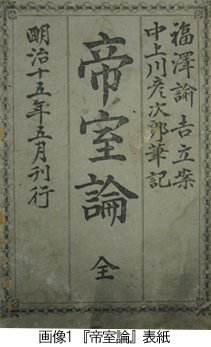 福澤諭吉立案
中上川彦次郎筆記
帝室論
全
明治十五年五月刊行
画像1 『帝室論』表紙